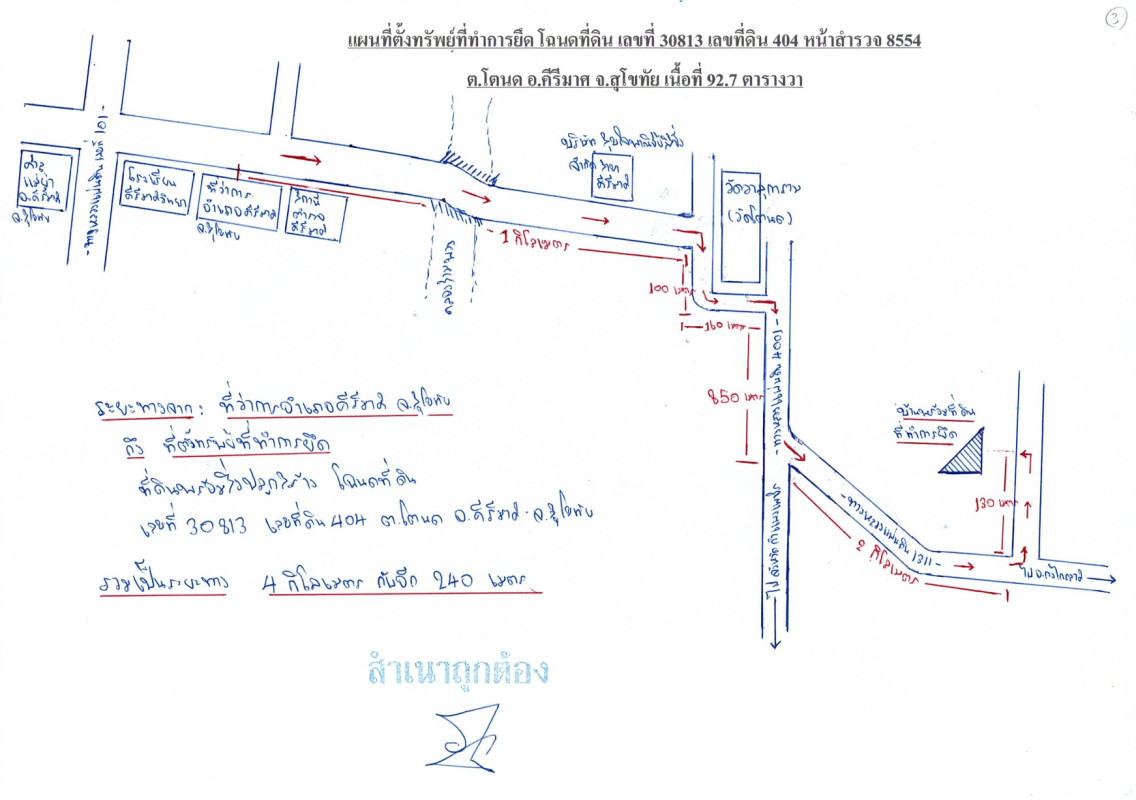 3
แผนที่ตั้งทรัพย์ที่ทำการยึด โฉนดที่ดิน เลขที่ 30813 เลขที่ดิน 404 หน้าสำรวจ 8554
ต.โตนด อ.คีรีมาศ จ.สุโขทัย เนื้อที่ 92.7 ตารางวา
-ทางหลวงแผ่นดิน เลขที่ 101-
อ.คีรีมาศ
จ.สุโขทัย
โรงเรียน
คีรีมาศวิทยา
ที่ว่าการ
อำเภอคีรีมาศ
จ.สุโขทัย
สถานี
ตำรวจ
คีรีมาศ
บริษัท
จำกัด สาขา
คีรีมาศ
วัดวาลุการาม
(วัดโตนด)
1 กิโลเมตร
100 เมตร
160 เมตร
850 เมตร
-ทางหลวงแผ่นดิน 4001-
บ้านพร้อมที่ดิน
ที่ทำการยึด
130 เมตร
-ทางหลวงแผ่นดิน 1311-
2 กิโลเมตร
ไป อ.กงไกรลาศ
ไป จังหวัดกำแพงเพชร
ระยะทางจาก: ที่ว่าการอำเภอคีรีมาศ จ.สุโขทัย
ถึง ที่ตั้งทรัพย์ที่ทำการยึด
ที่ดินพร้อมสิ่งปลูกสร้าง โฉนดที่ดิน
เลขที่ 30813 เลขที่ดิน 404 ต.โตนด อ.คีรีมาศ จ.สุโขทัย
รวมเป็นระยะทาง 4 กิโลเมตร กับอีก 240 เมตร
สำเนาถูกต้อง